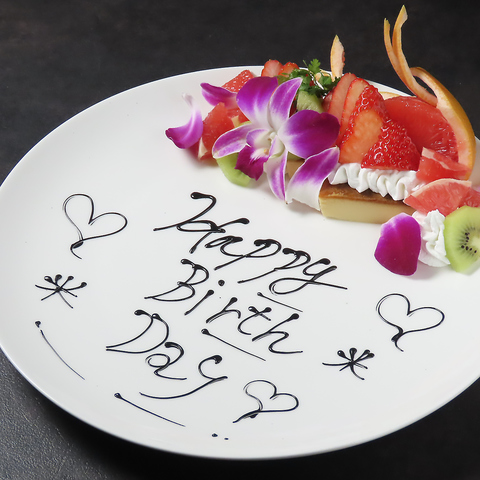 Happy
Birth
Day